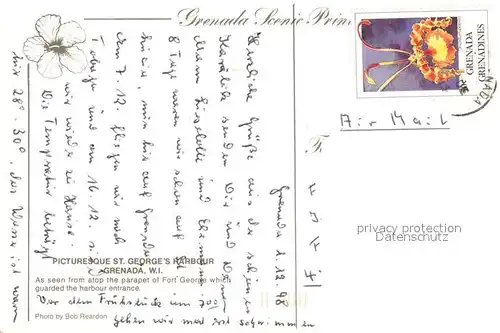 Grenada Scenic Prin
GRENADA
GRENADINES
Air Mail
Grenada 1.12.96
Herzliche Grüße aus der schönen
Karibik senden Dir und Deinem
Mann Liselotte und
8 Tage waren wir schon auf
nun bis auf Grenada
am 7.12. fliegen wir nach
Tobago und am 16.12. sind
wir wieder zu Hause.
Die Temperatur beträgt
hier 28°-30°, das Wasser ist warm
Vor dem Frühstück um 7⁰⁰
gehen wir erst schwimmen
PICTURESQUE ST. GEORGE'S HARBOUR
GRENADA, W.I.
As seen from atop the parapet of Fort George which
guarded the harbour entrance.
Photo by Bob Reardon
privacy protection
oldthing